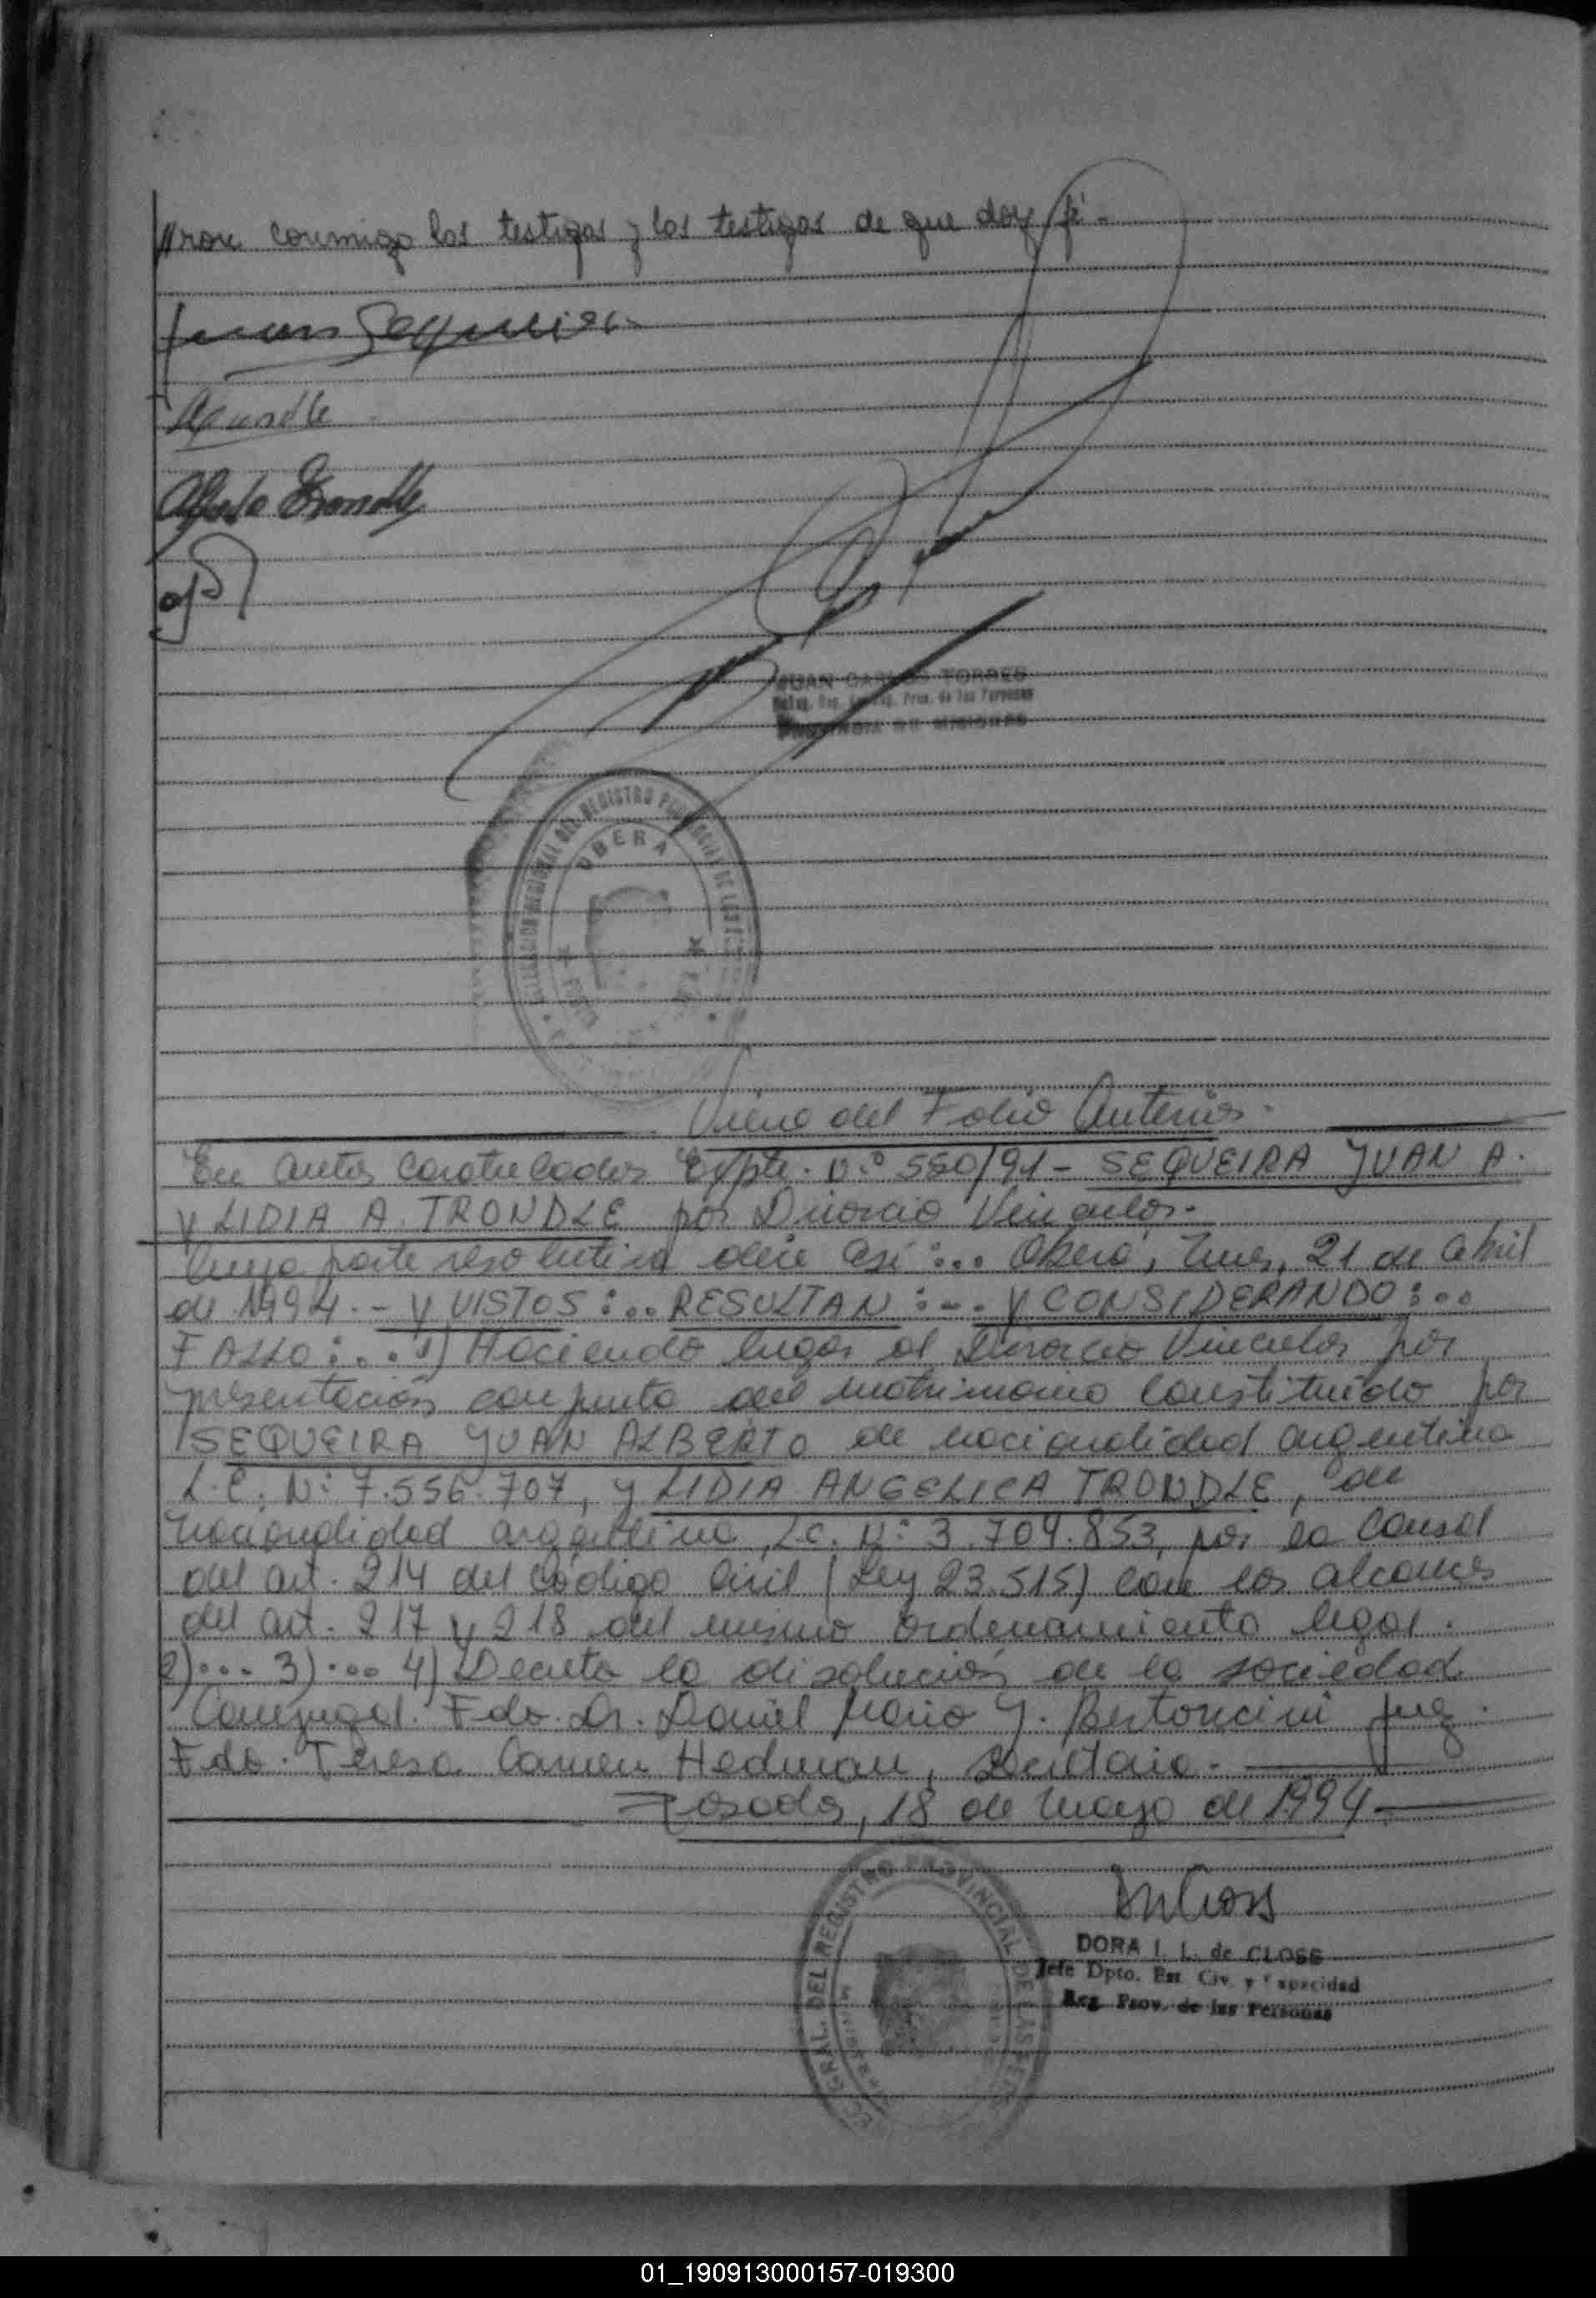 //ron conmigo los testigos y los testigos de que doy fé.-
Juan Sequeira
Alfredo Trondle
JUAN CARLOS TORRES
Prov. de las Personas
PROVINCIA DE MISIONES
DELEGACION REGIONAL DEL REGISTRO PROVINCIAL DE LAS
OBERA
Viene del Folio Anterior.
En autos caratulados Expte. N.° 550/91 - SEQUEIRA JUAN A.
y LIDIA A. TRONDLE por Divorcio Vincular.-
Cuya parte resolutiva dice así:... Oberá, Mnes, 21 de Abril
de 1994.- y VISTOS:... RESULTAN:... y CONSIDERANDO:...
FALLO:... 1) Haciendo lugar al Divorcio Vincular por
presentación conjunta del matrimonio constituído por
SEQUEIRA JUAN ALBERTO de nacionalidad argentina
L.E. N: 7.556.707, y LIDIA ANGELICA TRONDLE, de
nacionalidad argentina, L.C. N: 3.704.853, por la causal
del art. 214 del Código Civil (Ley 23.515) con los alcances
del art. 217 y 218 del mismo ordenamiento legal.
2)... 3)... 4) Decreta la disolución de la sociedad
Conyugal. Fdo. Dr. Daniel Mario J. Bertoncini Juez.
Fdo. Teresa Carmen Hedman, Secretaria.-
Posadas, 18 de Mayo de 1994.-
GRAL. DEL REGISTRO PROVINCIAL DE LAS PER
DORA I. L. de CLOSS
Jefe Dpto. Est. Civ. y Capacidad
Reg. Prov. de las Personas
01_190913000157-019300